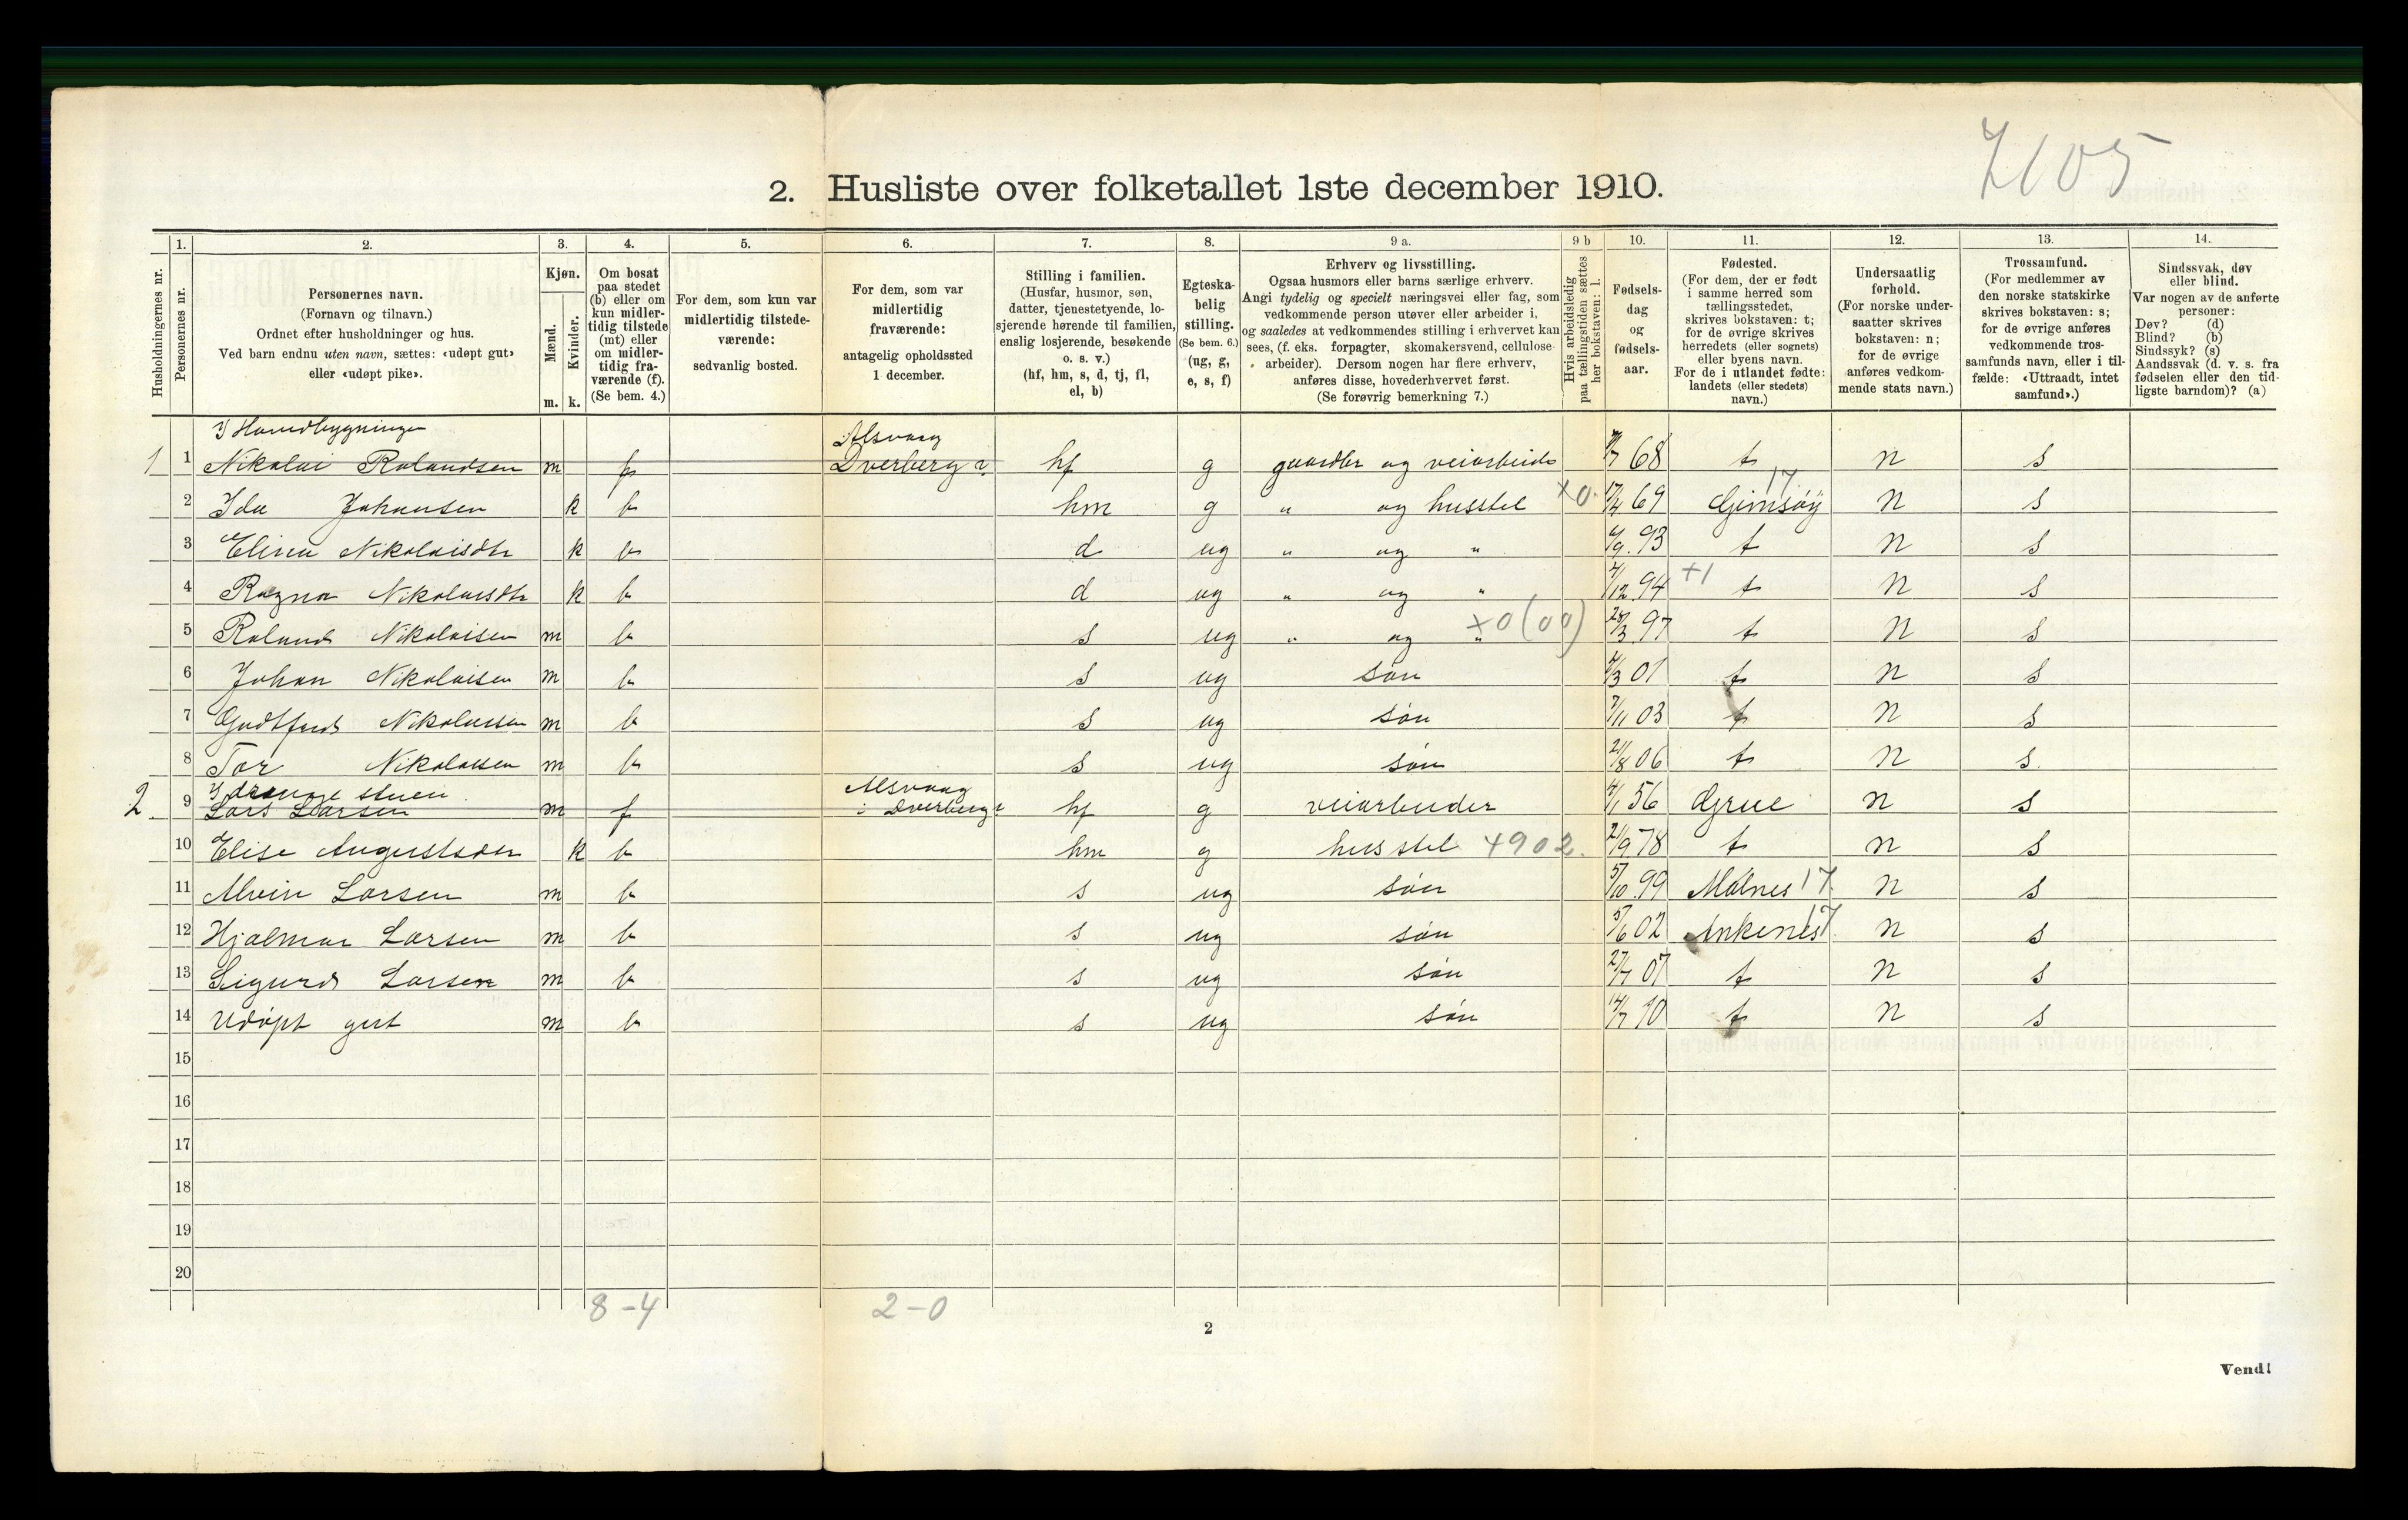 7105
2. Husliste over folketallet 1ste december 1910.
Husholdningernes nr.
1.
Personernes nr.
2.
Personernes navn.
(Fornavn og tilnavn.)
Ordnet efter husholdninger og hus.
Ved barn endnu uten navn, sættes: «udøpt gut»
eller «udøpt pike».
3.
Kjøn.
Mænd.
Kvinder.
m. k.
4.
Om bosat
paa stedet
(b) eller om
kun midler-
tidig tilstede
(mt) eller
om midler-
tidig fra-
værende (f).
(Se bem. 4.)
5.
For dem, som kun var
midlertidig tilstede-
værende:
sedvanlig bosted.
6.
For dem, som var
midlertidig
fraværende:
antagelig opholdssted
1 december.
7.
Stilling i familien.
(Husfar, husmor, søn,
datter, tjenestetyende, lo-
sjerende hørende til familien,
enslig losjerende, besøkende
o. s. v.)
(hf, hm, s, d, tj, fl,
el, b)
8.
Egteska-
belig
stilling.
(Se bem. 6.)
(ug, g,
e, s, f)
9 a.
Erhverv og livsstilling.
Ogsaa husmors eller barns særlige erhverv.
Angi tydelig og specielt næringsvei eller fag, som
vedkommende person utøver eller arbeider i,
og saaledes at vedkommendes stilling i erhvervet kan
sees, (f. eks. forpagter, skomakersvend, cellulose-
arbeider). Dersom nogen har flere erhverv,
anføres disse, hovederhvervet først.
(Se forøvrig bemerkning 7.)
9 b
Hvis arbeidsledig
paa tællingstiden sættes
her bokstaven: l.
10.
Fødsels-
dag
og
fødsels-
aar.
11.
Fødested.
(For dem, der er født
i samme herred som
tællingsstedet,
skrives bokstaven: t;
for de øvrige skrives
herredets (eller sognets)
eller byens navn.
For de i utlandet fødte:
landets (eller stedets)
navn.)
12.
Undersaatlig
forhold.
(For norske under-
saatter skrives
bokstaven: n;
for de øvrige
anføres vedkom-
mende stats navn.)
13.
Trossamfund.
(For medlemmer av
den norske statskirke
skrives bokstaven: s;
for de øvrige anføres
vedkommende tros-
samfunds navn, eller i til-
fælde: «Uttraadt, intet
samfund».)
14.
Sindssvak, døv
eller blind.
Var nogen av de anførte
personer:
Døv? (d)
Blind? (b)
Sindssyk? (s)
Aandssvak (d. v. s. fra
fødselen eller den tid-
ligste barndom)? (a)
I Hovedbygningen Alsvaag
1 1 Nikolai Rolandsen m f Dverberg? hf g gaardbr og veiarbeide 68 t n s
2 Ida Johansen k b hm g " og husstel x0 17/4 69 Gimsöy 17 n s
3 Elina Nikolaisdtr k b d ug " og " 93 t n s
4 Ragna Nikolaisdtr k b d ug " og " 94 +1 t n s
5 Roland Nikolaisen m b s ug " og " x0(00) 97 t n s
6 Johan Nikolaisen m b s ug søn 01 t n s
7 Godtfred Nikolaisen m b s ug søn 7/11 03 t n s
8 Tor Nikolaisen m b s ug søn 21/8 06 t n s.
I drenge stuen Alsvaag
2. 9 Lars Larsen m f i Dverberg? hf g veiarbeider 4/1 56 Grue n s
10 Elise Augustsdtr k b hm g husstel 4902. 21/9 78 t n s
11 Alvin Larsen m b s ug søn 5/10 99 Malnes 17 n s
12 Hjalmar Larsen m b s ug søn 5/6 02 Ankenes 17 n s
13 Sigurd Larsen m b s ug søn 27/7 07 t n s
14 Udøpt gut m b s ug søn 14/7 10 t n s
15
16
17
18
19
20
8-4 2-0
2
Vend!